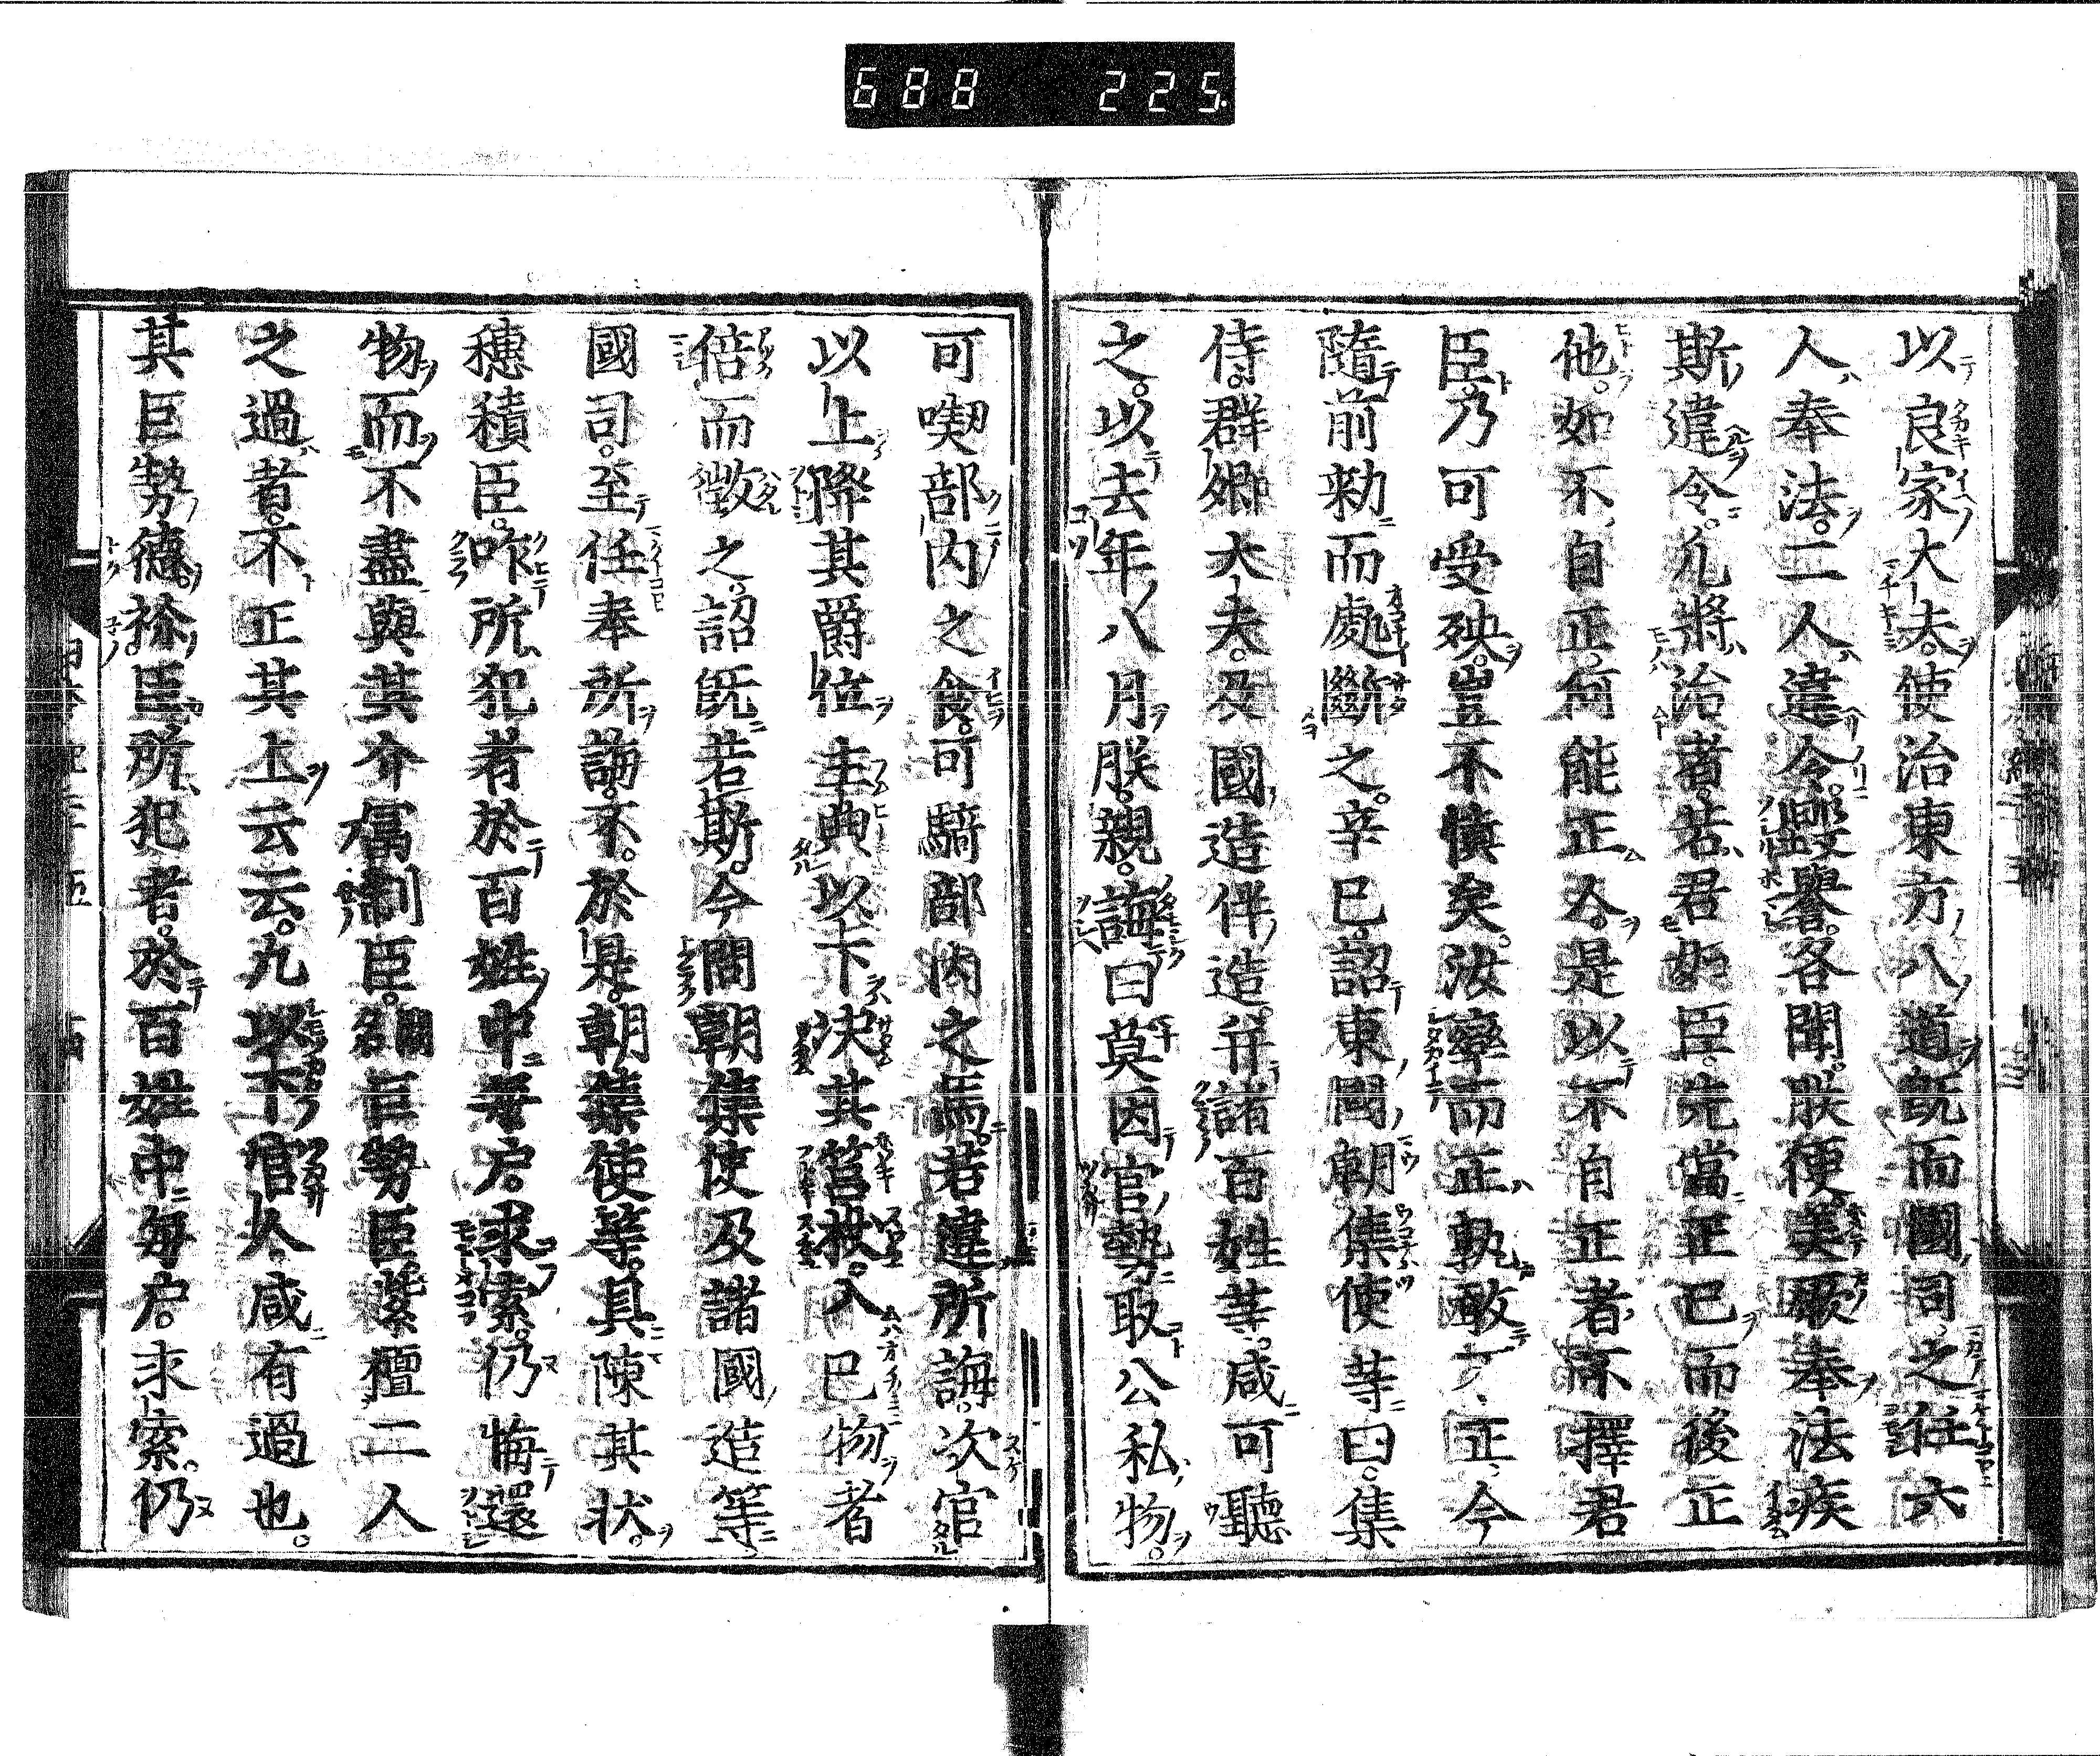 688 225
以良家大夫。使治東方八道既而國司之任六
人奉法。二人違令毀譽。各聞。朕便美厥奉法疾
斯違令。凡將治者。若君如臣。先當正已而後正
他。如不自正。何能正人。是以不自正者不擇君
臣。乃可受殃。豈不慎矣。汝率而正孰敢不正。今
隨前勅而處斷之。辛巳。詔東國朝集使等曰。集
侍。群卿大夫。及國造伴造。并諸百姓等。咸可聽
之。以去年八月朕。親。誨曰莫因官勢取公私物。
可喫部内之食。可騎部内之馬。若違所誨。次官
以上降其爵位主典以下決其笞杖。入已物者
倍而徴之。詔既若斯。今問朝集使及諸國造等
國司。至任奉所誨。不。於是。朝集使等。具陳其状。
穗積臣。咋所犯者於百姓中毎戸。求索。仍悔還
物而不盡與其介富制臣。名闕巨勢臣。紫檀二人
之過者。不正其上云云。凡以下官人咸有過也。
其巨勢德祢臣所犯者。於百姓中毎戸。求索。仍